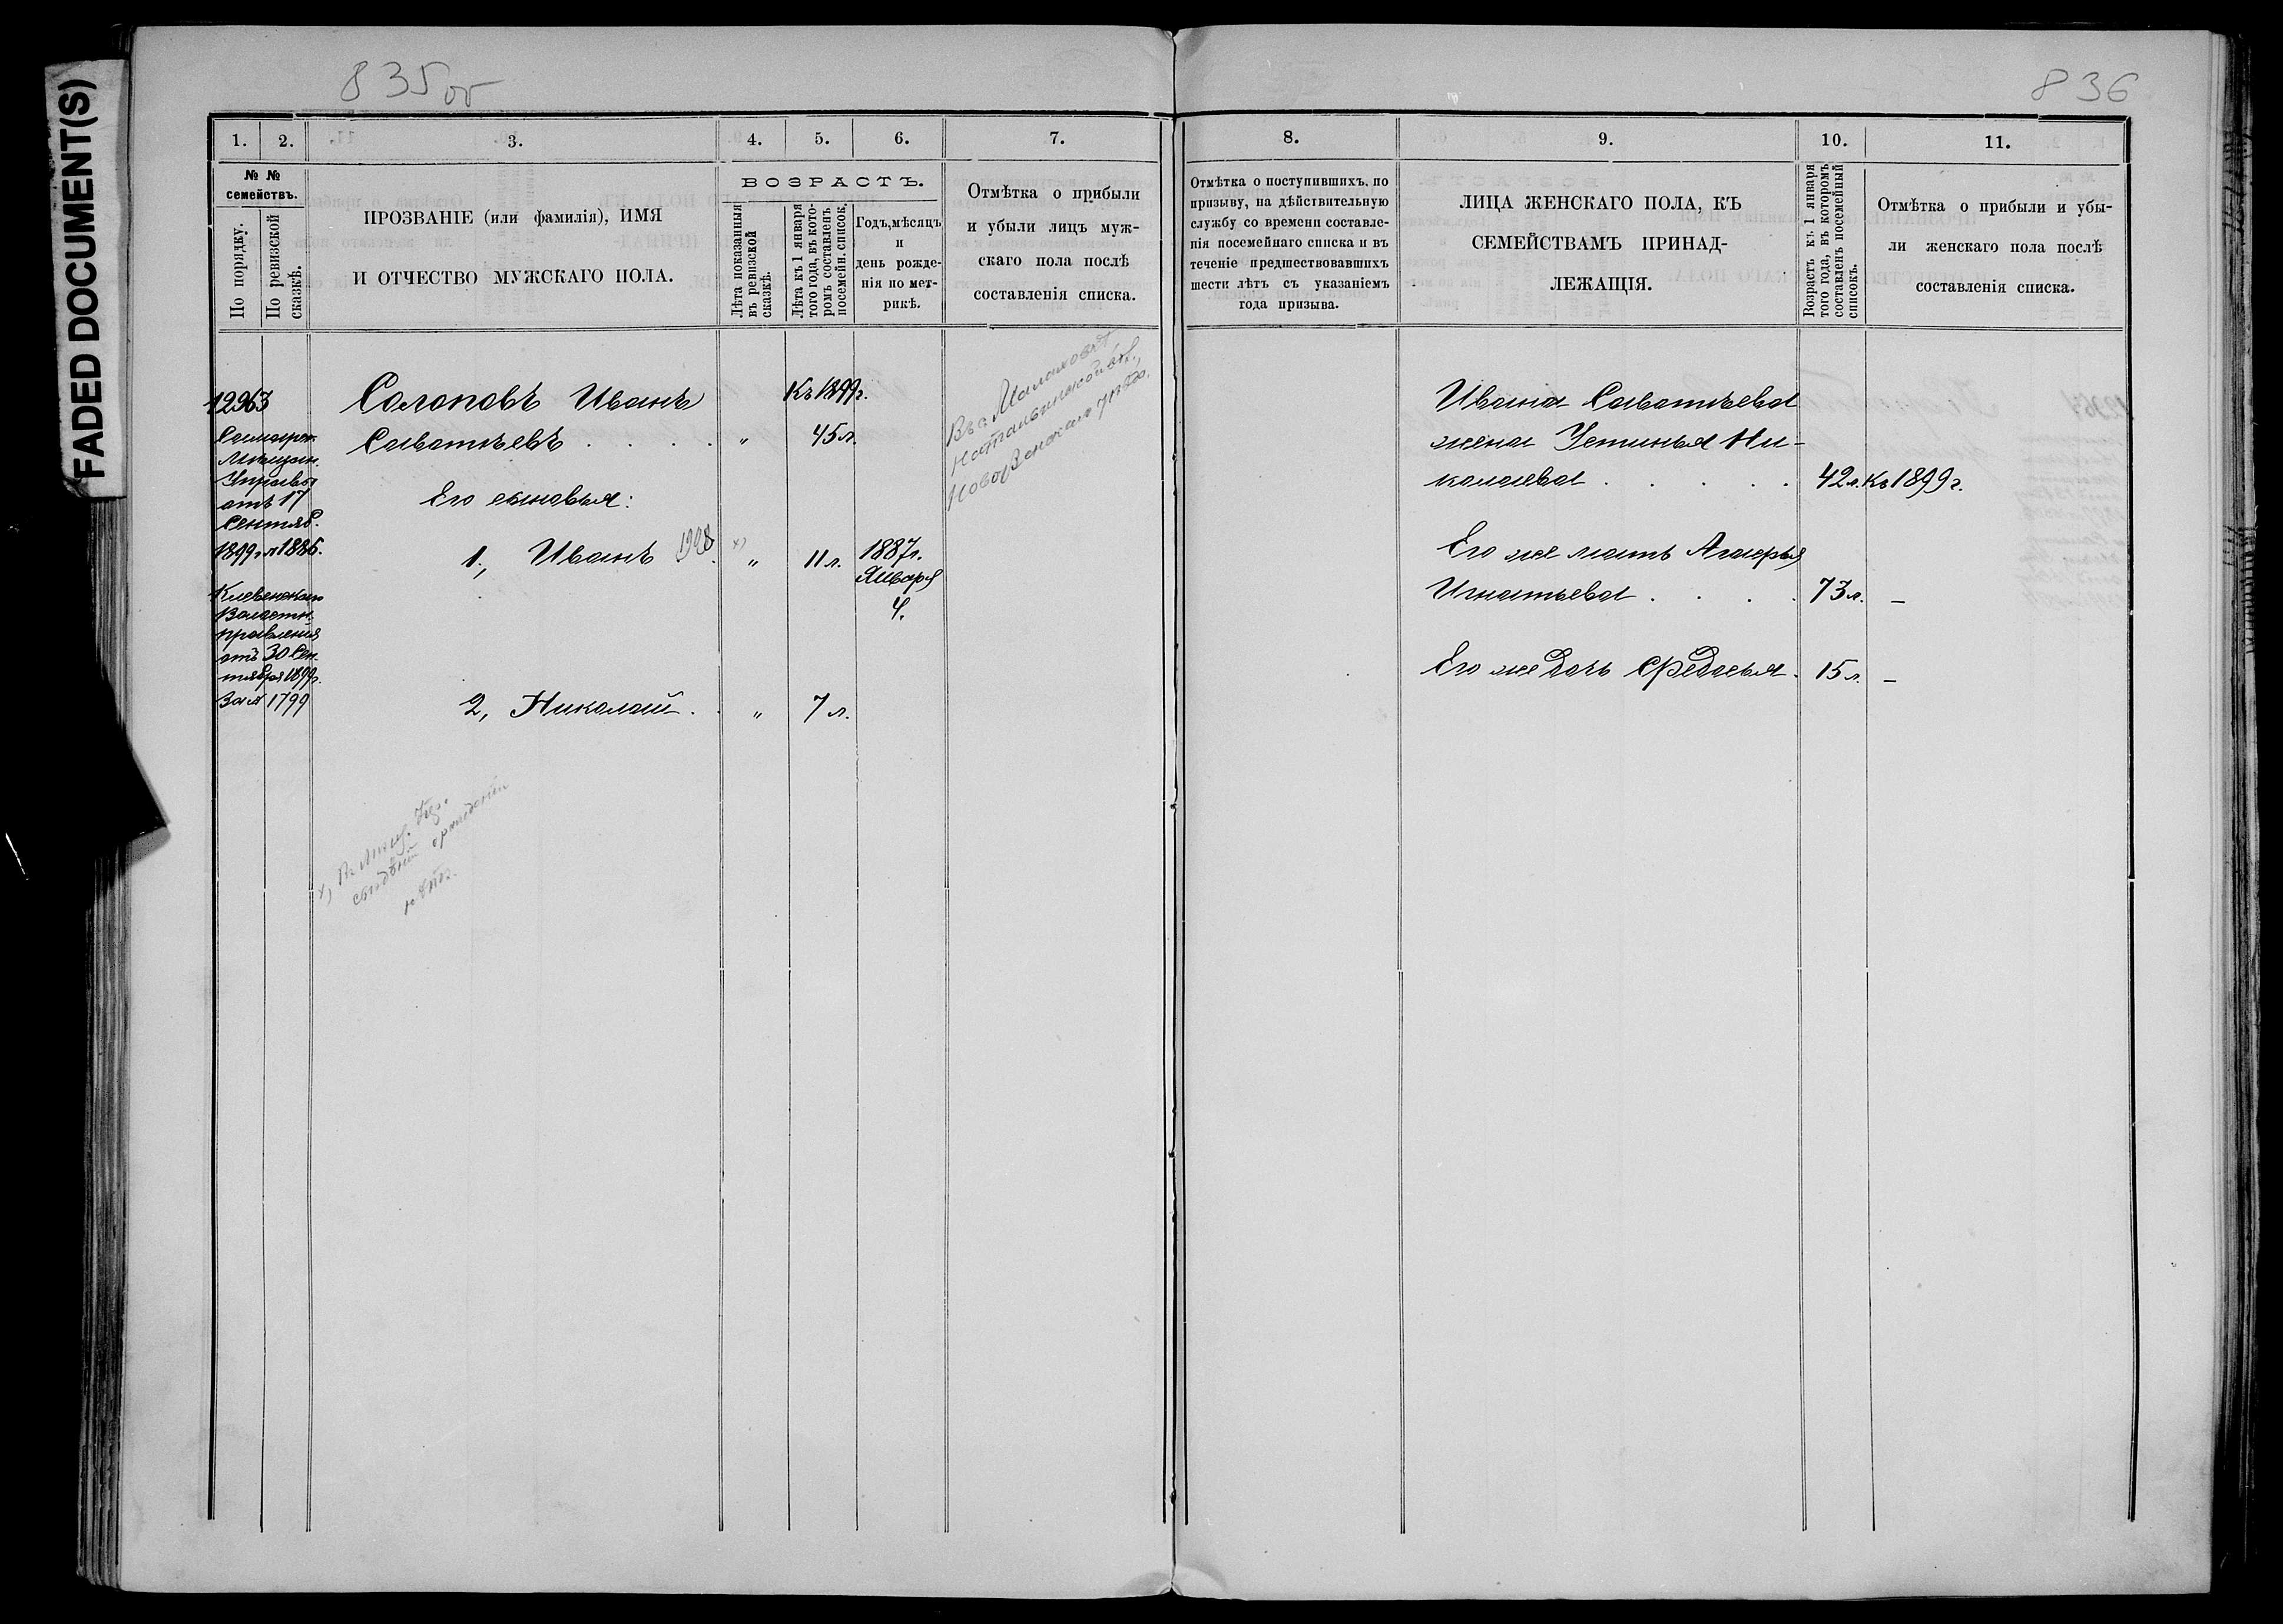 FADED DOCUMENT(S)
835об
836
1.
2.
3.
4.
5.
6.
7.
8.
9.
10.
11.
№ №
семействъ.
По порядку.
По ревизской
сказкѣ.
ПРОЗВАНІЕ (или фамилія), ИМЯ
И ОТЧЕСТВО МУЖСКАГО ПОЛА.
ВОЗРАСТЪ.
Лѣта показанныя
въ ревизской
сказкѣ.
Лѣта къ 1 января
того года, въ кото-
ромъ составленъ
посемейн. список.
Годъ, мѣсяцъ
и
день рожде-
нія по мет-
рикѣ.
Отмѣтка о прибыли
и убыли лицъ муж-
скаго пола послѣ
составленія списка.
Отмѣтка о поступившихъ, по
призыву, на дѣйствительную
службу со времени составле-
нія посемейнаго списка и въ
теченіе предшествовавшихъ
шести лѣтъ съ указаніемъ
года призыва.
ЛИЦА ЖЕНСКАГО ПОЛА, КЪ
СЕМЕЙСТВАМЪ ПРИНАД-
ЛЕЖАЩІЯ.
Возрастъ къ 1 января
того года, въ которомъ
составленъ посемейный
списокъ.
Отмѣтка о прибыли и убы-
ли женскаго пола послѣ
составленія списка.
12963
Самарск.
Мѣщан.
Управы
отъ 17
Сентяб.
1899 г. № 1886.
Волостн.
правленія
отъ 30 Сен-
тября 1899 г.
За № 1799
Солоповъ Иванъ
Савватѣевъ . . . . „ 45 л.
Къ 1899 г.
Его сыновья:
1., Иванъ 1908 х) „ 11 л. 1887 г.
Января
4.
2, Николай . „ 7 л.
Въ с. Малаховѣ
Новоузенскаго уѣзда.
х) Въ Мѣщ. Упр.
свѣдѣній о рожденіи
нѣтъ.
Ивана Савватѣева
жена Устинья Ни-
колаева . . . . . 42 л. Къ 1899 г.
Его же мать Агафья
Игнатьева . . . . 73 л. –
Его же дочь Федосья . 15 л. –